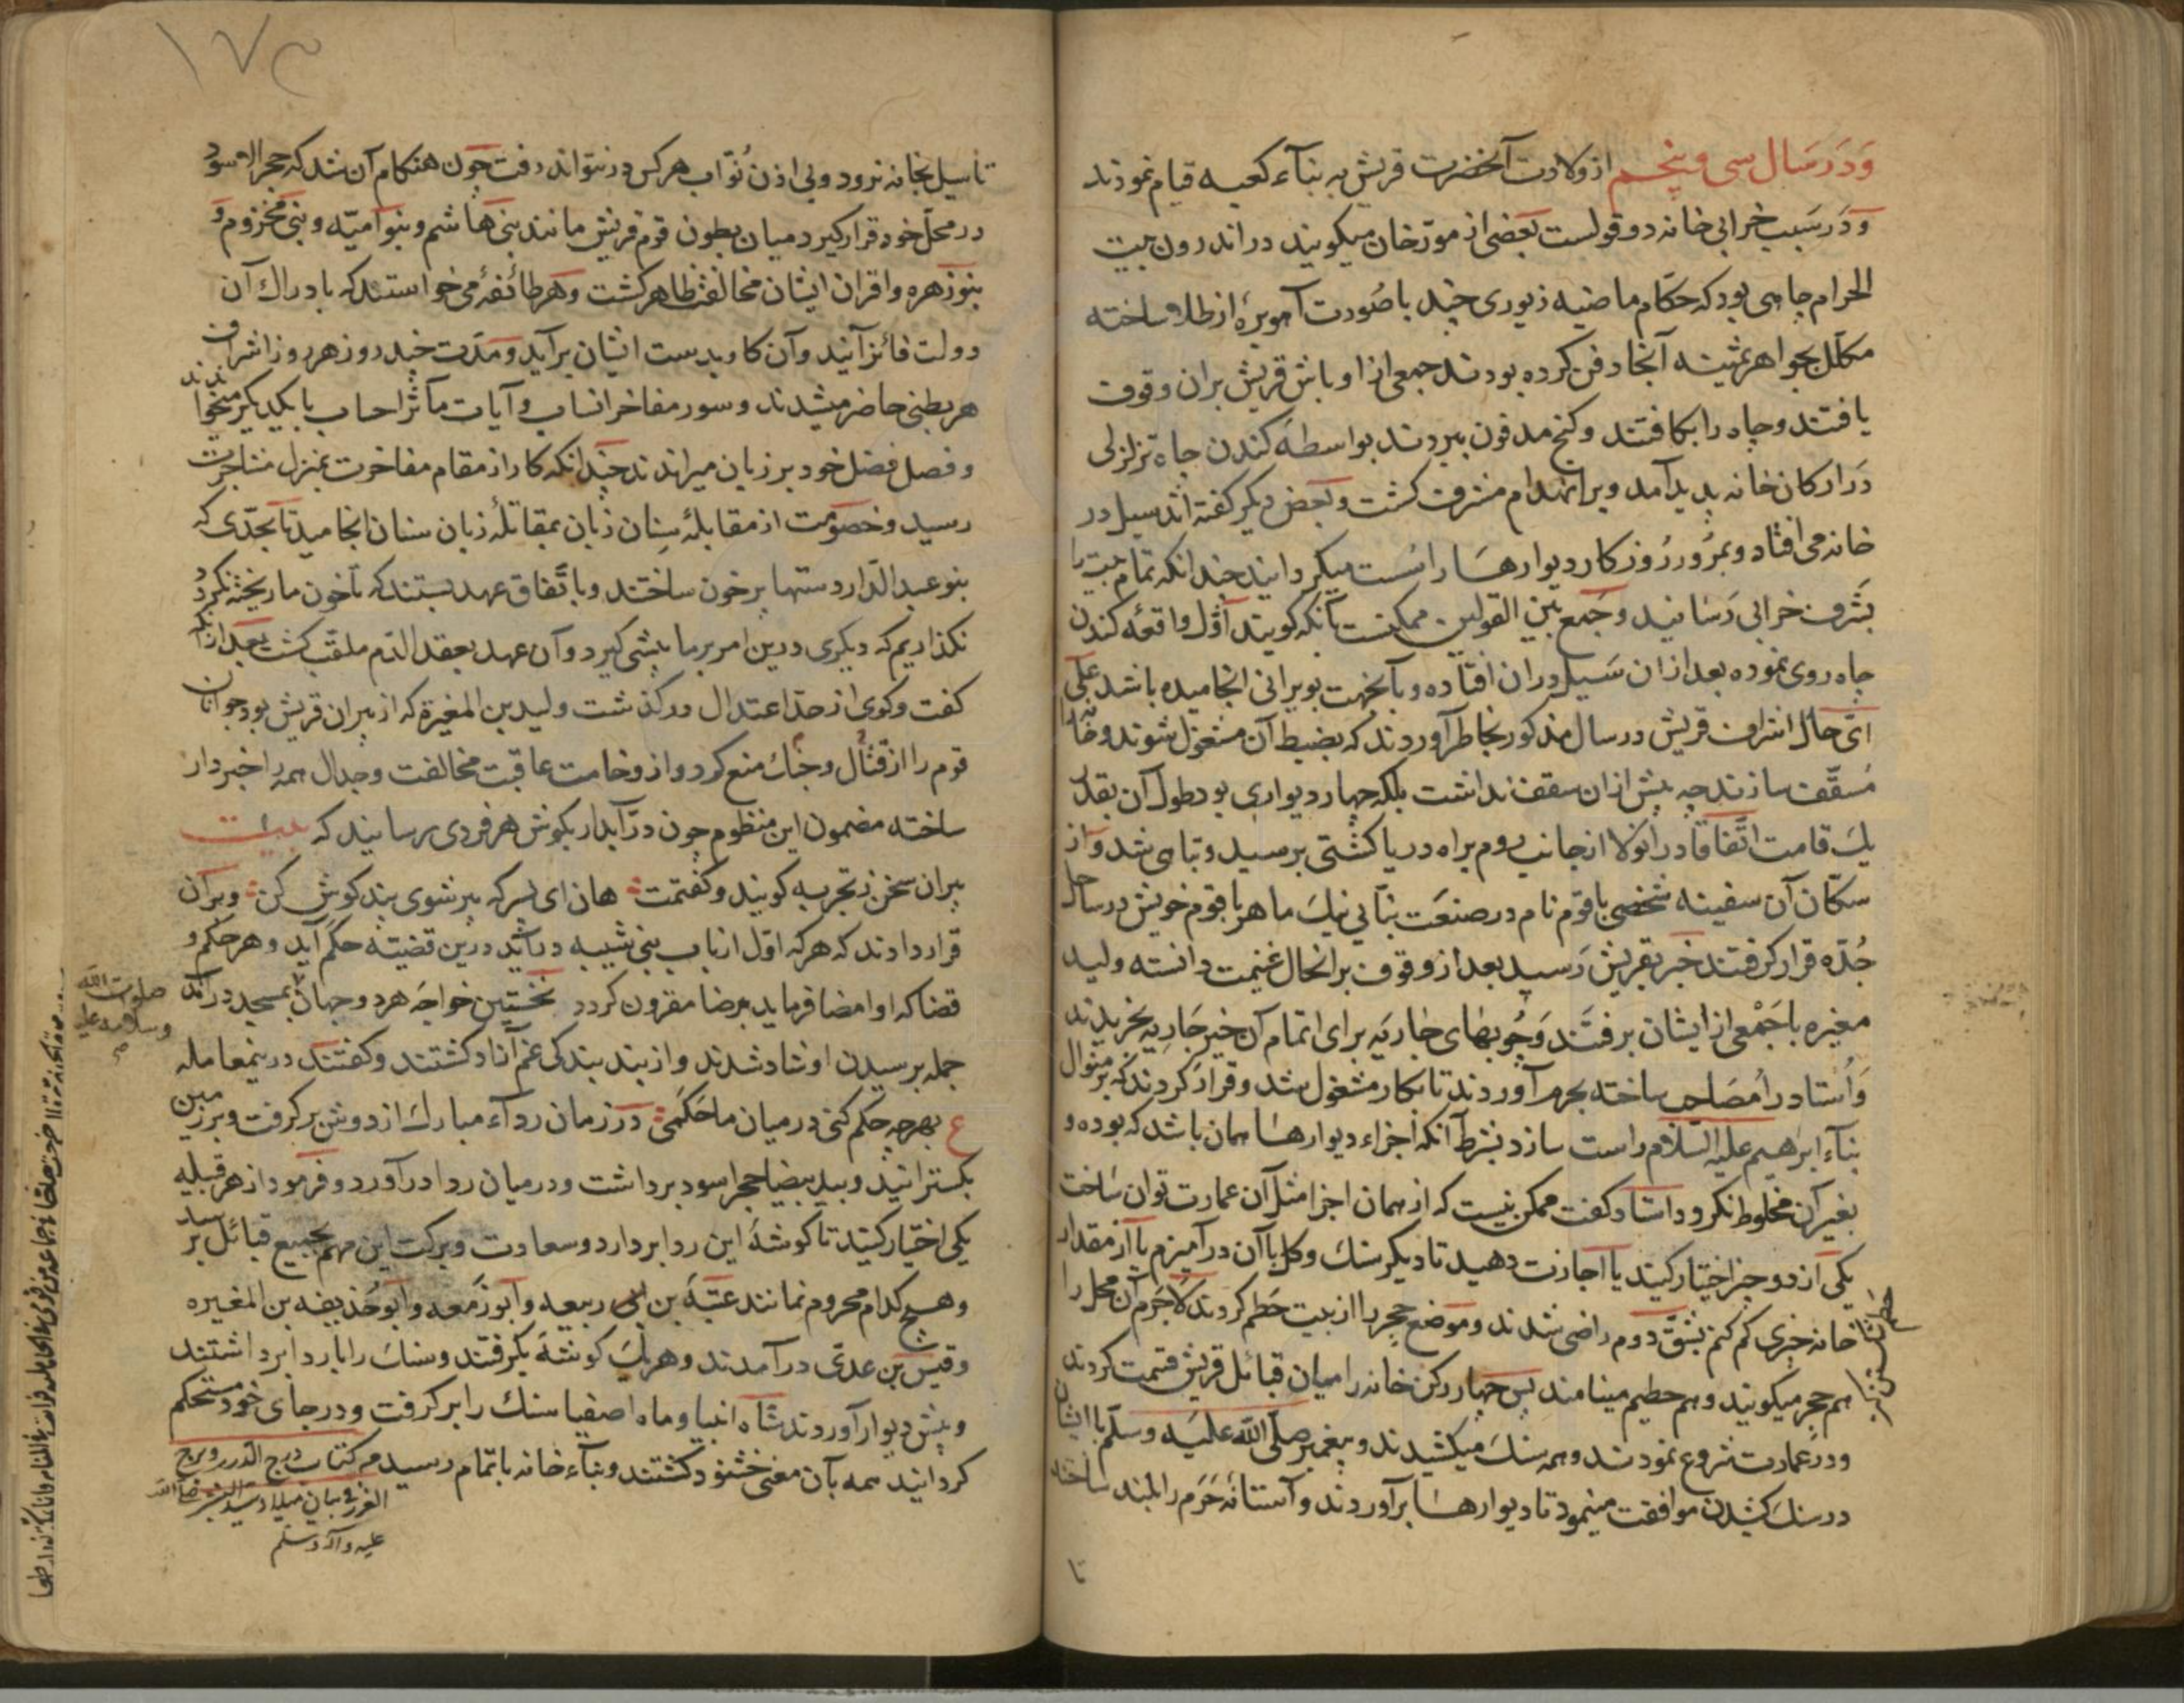 و در سال سی و پنجم از ولادت آنحضرت قریش به بنآء کعبه قیام نمودند
و در سبب خرابی خانه دو قولست بعضی از مورّخان میکویند در اندرون بیت
الحرام چاهی بود که حکّام ماضیه زیوری چند با صورت آهو برۀ از طلا ساخته
مکلّل بجواهر ثمینه آنجا دفن کرده بودند جمعی از اوباش قریش بران وقوف
یافتند و چاه را بکافتند و کنج مدفون ببردند بواسطه کندن چاه تزلزلی
در ارکان خانه پدید آمد و بر انهدام مشرف کشت و بعض دیکر کفته اند سیل در
خانه می افتاد و بمرور روز کار دیوارها را سست میکردانید چندانکه تمام بیت را
بشرف خرابی رسانید و جمع بین القولین ممکنست بآنکه کویند اوّل واقعه کندن
چاه روی نموده بعد از ان سیل دران افتاده و بآنجهت بویرانی انجامیده باشد علی
ایّ حال اشراف قریش در سال مذکور بخاطر آوردند که بضبط آن مشغول شوند و خانه را
مسقّف سازند چه پیش ازان سقف نداشت بلکه چهار دیواری بود طول آن بقدر
یک قامت اتّفاقا دران ولا از جانب روم براه دریا کشتی برسید و تباهی شد و از
سکّان آن سفینه شخصی باقوم نام در صنعت بنّائی نیک ماهر با قوم خویش در ساحل
جدّه قرار کرفتند خبر بقریش رسید بعد از وقوف بر انحال غنیمت دانسته ولید
مغیره با جمعی از ایشان برفتند و چوبهای خاریه برای اتمام آن خیر جاریه بخریدند
و استاد را مصاحب ساخته بحرم آوردند تا بکار مشغول شد و قرار کردند که بر منوال
بنآء ابرهیم علیه السلام راست سازد بشرط آنکه اجزاء دیوارها همان باشد که بوده و
بغیر آن مخلوط نکرود استاد کفت ممکن نیست که از همان اجزا مثل آن عمارت توان ساخت
یکی از دو چیز اختیار کنید یا اجازت دهید تا دیکر سنک و کل با آن در آمیزم یا از مقدار
خانه چیزی کم کنم بشقّ دوم راضی شدند و موضع حجر را از بیت حطم کردند لاجرم آن محل را
هم حجر میکویند و هم حطیم مینامند پس چهار رکن خانه را میان قبائل قریش قسمت کردند
و در عمارت شروع نمودند و همه سنک میکشیدند و پیغمبر صلّی الله علیه و سلّم با ایشان
در سنک کشیدن موافقت مینمود تا دیوارها برآوردند و آستانه حرم را بلند ساختند
تا
حطم شکستن
۱۷۳
تا سیل بخانه نرود و بی اذن نوّاب هر کس در نتواند رفت چون هنکام آن شد که حجر الاسود
در محلّ خود قرار کیرد میان بطون قوم قریش مانند بنی هاشم و بنو امیّه و بنی مخزوم و
بنو زهره و اقران ایشان مخالفت ظاهر کشت و هر طائفۀ می خواستند که بادراک آن
دولت فائز آیند و آن کار بدست ایشان برآید و مدّت چند روز هر روز اشراف
هر بطنی حاضر میشدند و سور مفاخر انساب و آیات مآثر احساب با یکدیکر میخواندند
و فصل فضل خود بر زبان میراندند چندانکه کار از مقام مفاخرت بمنزل مشاجرت
رسید و خصومت از مقابلۀ سنان زبان بمقاتلۀ زبان سنان انجامید تا بحدّی که
بنو عبد الدّار دستها پر خون ساختند و باتّفاق عهد بستند که تا خون ما ریخته نکردد
نکذاریم که دیکری درین امر بر ما پیشی کیرد و آن عهد بعقد الدّم ملقّب کشت بعد ازانکه
کفت و کوی از حدّ اعتدال درکذشت ولید بن المغیرة که از پیران قریش بود جوانان
قوم را از قتال و جنک منع کرد و از وخامت عاقبت مخالفت و جدال همه را خبردار
ساخته مضمون این منظوم چون درّ آبدار بکوش هر فردی برسانید که بیت
پیران سخن ز تجربه کویند و کفتمت هان ای پسر که پیر شوی پند کوش کن و بران
قرار دادند که هر که اوّل از باب بنی شیبه درآید درین قضیه حکم آید و هر حکم و
قضا که او امضا فرماید برضا مقرون کردد نخستین خواجه هر دو جهان بمسجد درآمد
صلوات الله
وسلامه علیه
جمله برسیدن او شاد شدند و از بند بندکی غم آزاد کشتند و کفتند درینمعامله
ع بهرچه حکم کنی در میان ما حکمی در زمان ردآء مبارک از دوش بر کرفت و بر زمین
بکسترانید و بید بیضا حجر اسود برداشت و در میان ردا درآورد و فرمود از هر قبیله
یکی اختیار کنید تا کوشۀ این ردا بردارد و سعادت و برکت این مهم بجمیع قبائل برسد
و هیچ کدام محروم نمانند عتبة بن ربیعه و ابو زمعه و ابو حذیفه بن المغیره
و قیس بن عدیّ درآمدند و هر یک کوشه بکرفتند و سنک را با ردا برداشتند
و پیش دیوار آوردند شاه انبیا و ماه اصفیا سنک را برکرفت و در جای خود مستحکم
کردانید همه بآن معنی خشنود کشتند و بنآء خانه باتمام رسید من کتاب درج الدرر و برج
الغرر فی بیان میلاد سید البشر صلی الله
علیه و آله و سلم